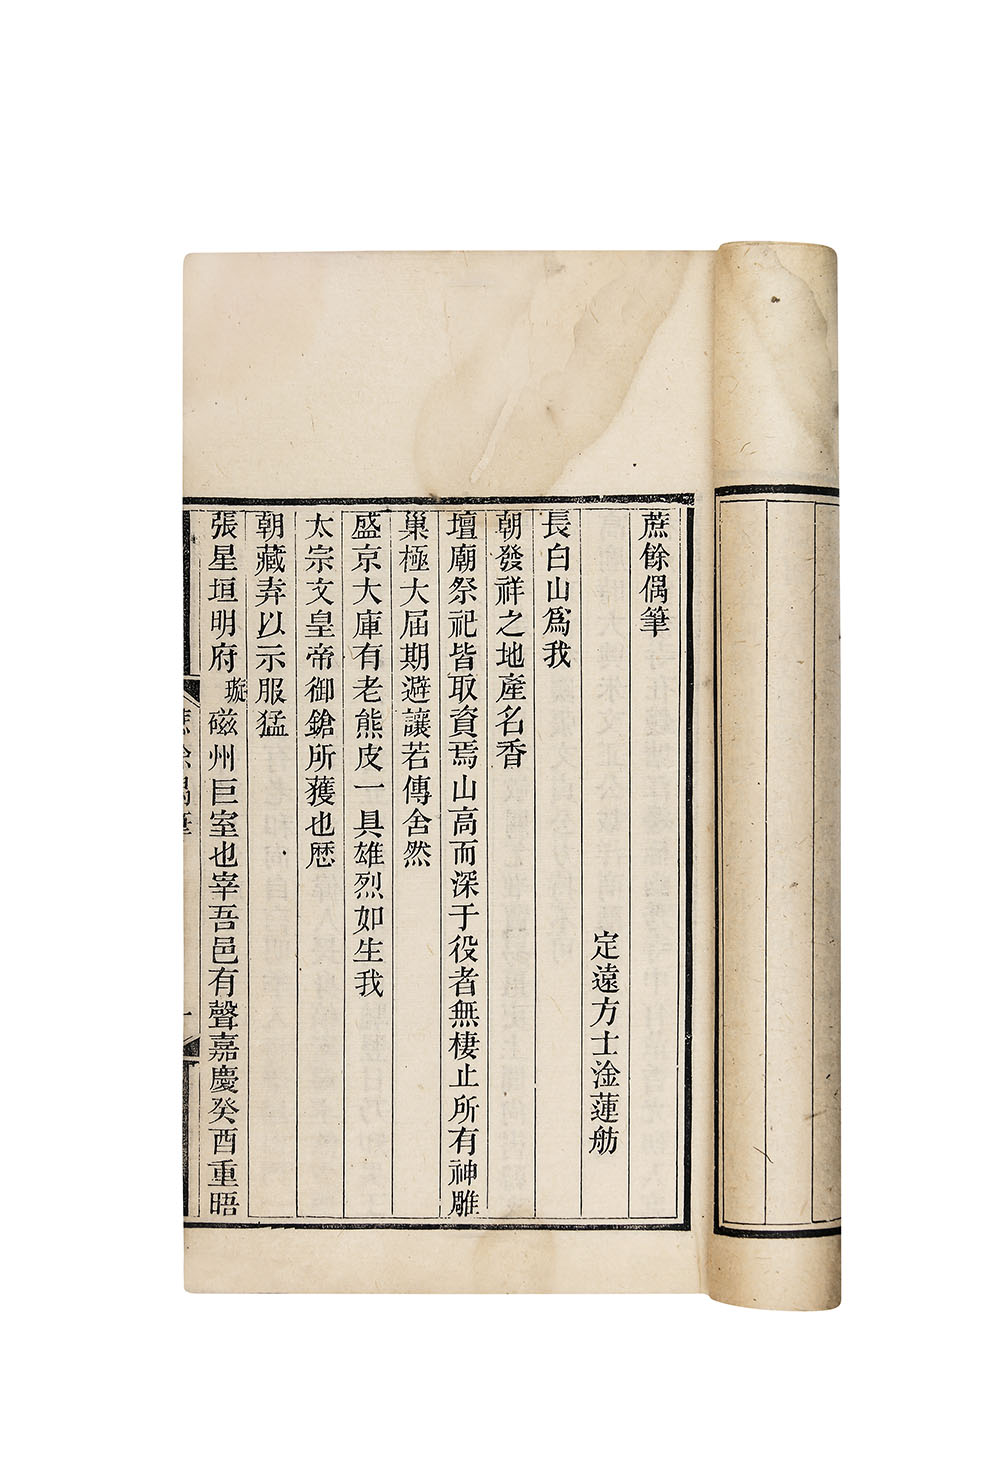 蔗餘偶筆
定遠方士淦蓮舫
長白山爲我
朝發祥之地產名香
壇廟祭祀皆取資焉山高而深于役者無棲止所有神雕
巢極大屆期避讓若傳舍然
盛京大庫有老熊皮一具雄烈如生我
太宗文皇帝御鎗所獲也歷
朝藏弆以示服猛
張星垣明府璇磁州巨室也宰吾邑有聲嘉慶癸酉重晤